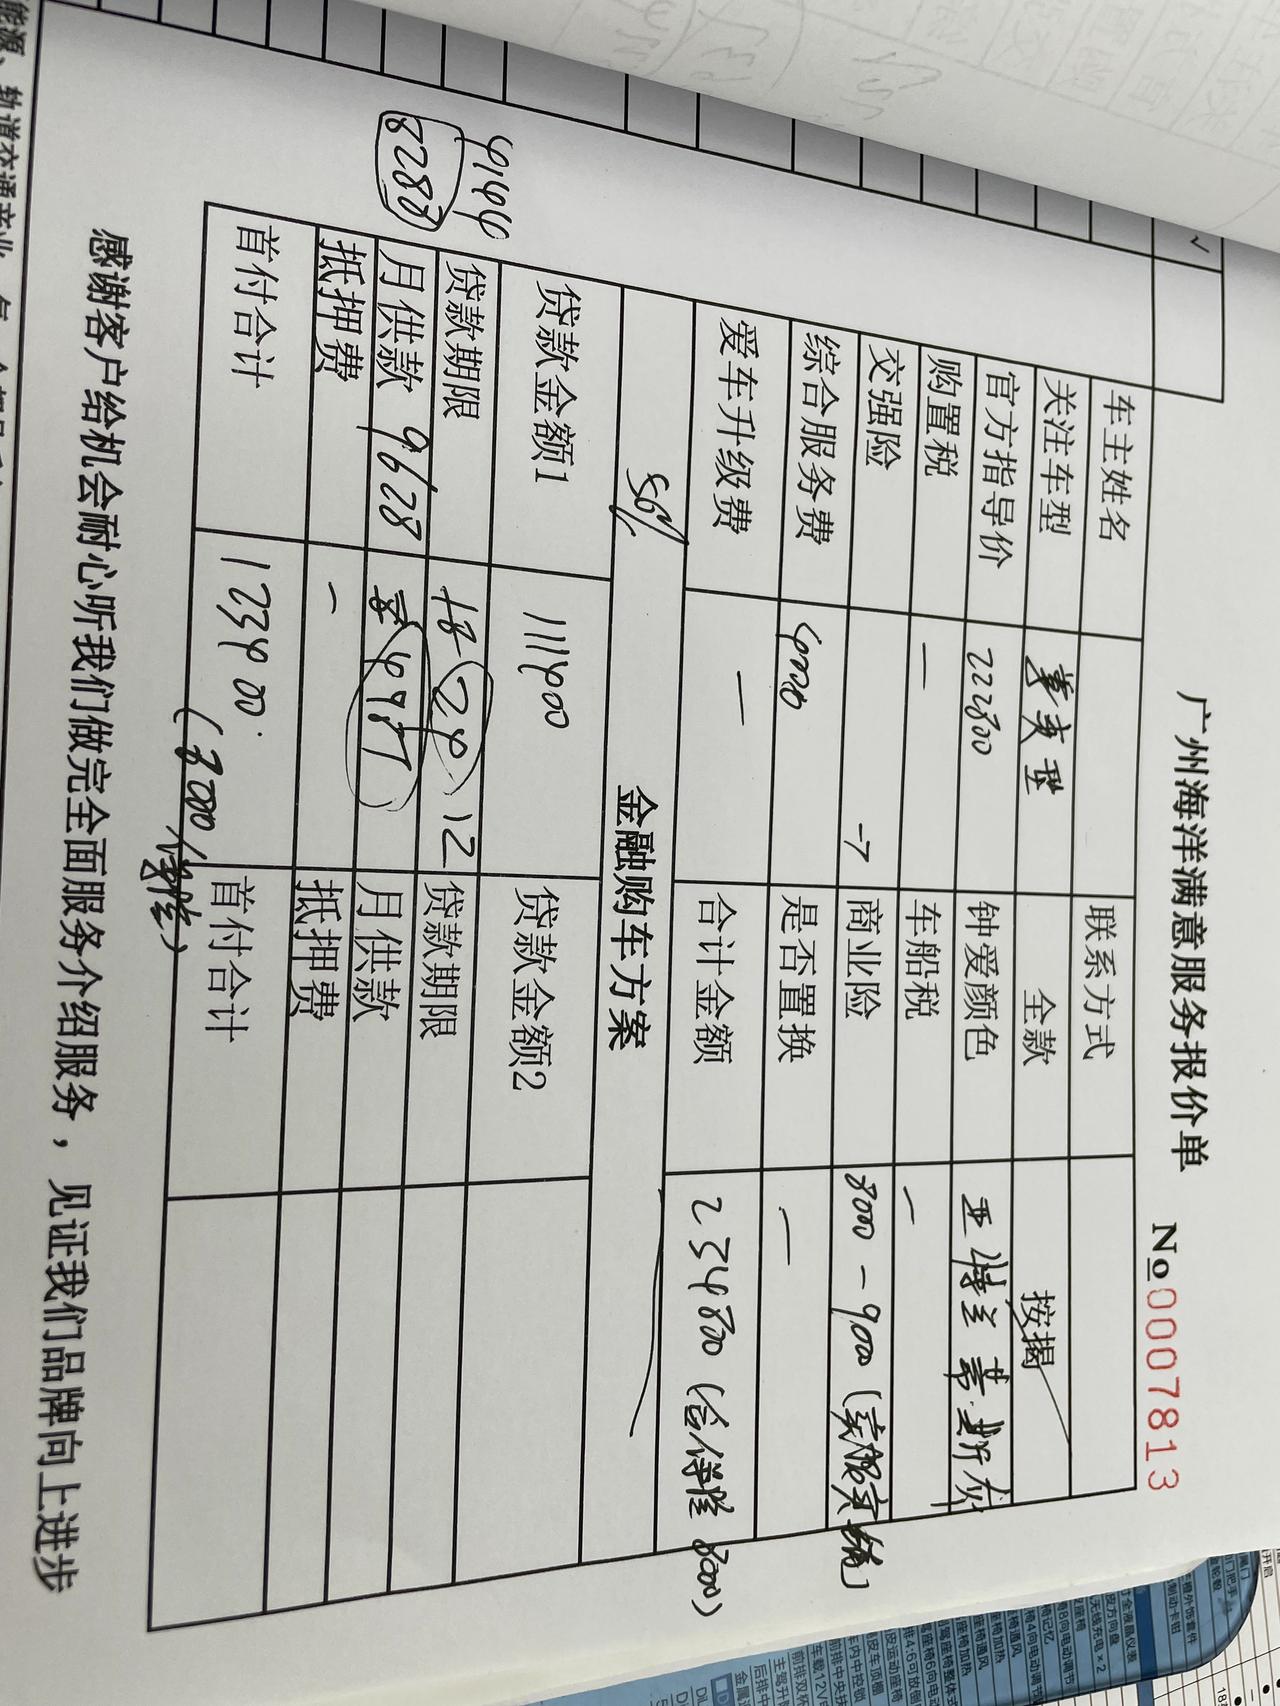 广州海洋满意服务报价单 No 0007813
车主姓名 联系方式
关注车型 菁英型 全款 按揭
官方指导价 222800 钟爱颜色 亚特兰蒂斯灰
购置税 — 车船税 —
交强险 商业险 8000-9000 (实报实销)
综合服务费 4000 是否置换 —
爱车升级费 — 合计金额 234800 (含保险 8000)
金融购车方案
贷款金额1 111400 贷款金额2
贷款期限 18 24 12 贷款期限
月供款 9628 月供款
抵押费 — 抵押费
首付合计 123400 (8000保险) 首付合计
8283
感谢客户给机会耐心听我们做完全面服务介绍服务，见证我们品牌向上进步